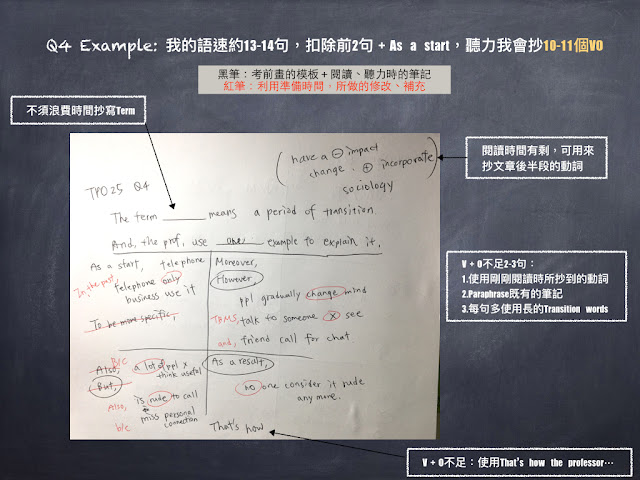 Q4 Example: 我的語速約13-14句，扣除前2句 + As a start，聽力我會抄10-11個VO
黑筆：考前畫的模板 + 閱讀、聽力時的筆記
紅筆：利用準備時間，所做的修改、補充
不須浪費時間抄寫Term
閱讀時間有剩，可用來
抄文章後半段的動詞
(have a ⊖ impact
change. ⊕ incorporate)
sociology
TPO25 Q4
The term ______ means a period of transition
And, the prof. use one example to explain it.
As a start, telephone
In the past, telephone only
business use it
To be more specific,
Moreover,
However,
ppl gradually change mind
TBMS, talk to someone ⊗ see
and, friend call for chat
B/c
Also, a lot of ppl x
think useful
But,
Also, is rude to call
miss personal
b/c connection
As a result,
no one consider it rude
any more.
That's how
V + O不足2-3句：
1.使用剛剛閱讀時所抄到的動詞
2.Paraphrase既有的筆記
3.每句多使用長的Transition words
V + O不足：使用That's how the professor…